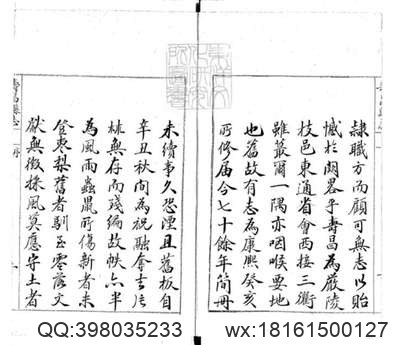 隸職方而顧可無志以貽
憾於闕畧乎壽昌為嚴陵
枝邑東通省會西接三衢
雖蕞爾一隅亦咽喉要地
也舊故有志為康熙癸亥
所修届今七十餘年簡冊
未續事久恐湮且舊板自
辛丑秋間為祝融奪去片
林無存而殘編故帙亦半
為風雨蟲鼠所傷新者未
登棗梨舊者馴至零落文
獻無徵採風莫應守土者
QQ:398035233
wx:18161500127